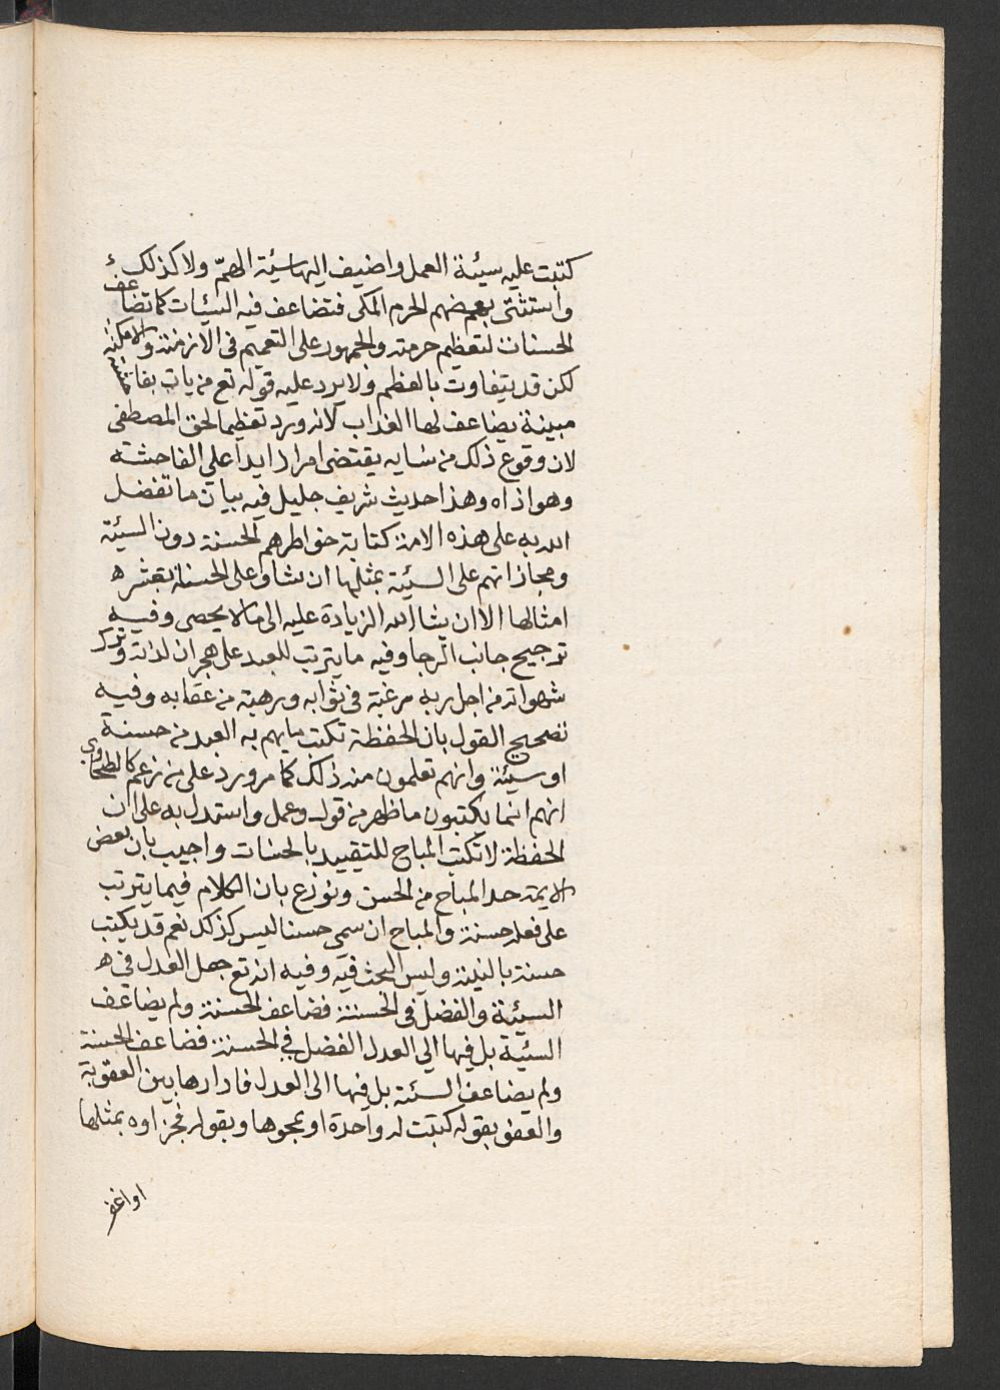 كتبت عليه سيئة العمل واضيف اليها سيئة الهمّ ولا كذلك
واستثنى بعضهم الحرم المكى فتضاعف فيه السيئات كما تضاعف
الحسنات لتعظيم حرمته والجمهور على التعميم فى الازمنة والامكنة
لكن قد يتفاوت بالعظم ولا يرد عليه قوله تع من يات بفاحشة
مبينة يضاعف لها العذاب لانه ورد تعظيما لحق المصطفى
لان وقوع ذلك من نسايه يقتضى امرا زايدا على الفاحشة
وهو اذاه وهذا حديث شريف جليل فيه بيان ما تفضل
الله به على هذه الامة كتابة خواطرهم الحسنة دون السيئة
ومجازاتهم على السيئة بمثلها ان شا وعلى الحسنة بعشر
امثالها الا ان يشا الله الزيادة عليه الى ما لا يحصى وفيه
ترجيح جانب الرجا وفيه ما يترتب للعبد على هجران لذاته وترك
شهواته من اجل ربه رغبة فى ثوابه ورهبة من عقابه وفيه
تصحيح القول بان الحفظة تكتب ما يهم به العبد من حسنة
او سيئة وانهم تعلمون منه ذلك كما مر ورد على من زعم كالطحاوى
انهم انما يكتبون ما ظهر من قول وعمل واستدل به على ان
الحفظة لا تكتب المباح للتقييد بالحسنات واجيب بان بعض
الايمة عد المباح من الحسن ونوزع بان الكلام فيما يترتب
على فعله حسنة والمباح ان سمى حسنا ليس كذلك نعم قد يكتب
حسنة بالنية وليس البحث فيه وفيه انه تع جعل العدل فى
السيئة والفضل فى الحسنة فضاعف الحسنة ولم يضاعف
السيئة بل فيها الى العدل الفضل فى الحسنة فضاعف الحسنة
ولم يضاعف السيئة بل فيها الى العدل فادارها بين العقوبة
والعفو بقوله كتبت له واحدة او يمحوها وبقوله فجزاوه بمثلها
او اغفر